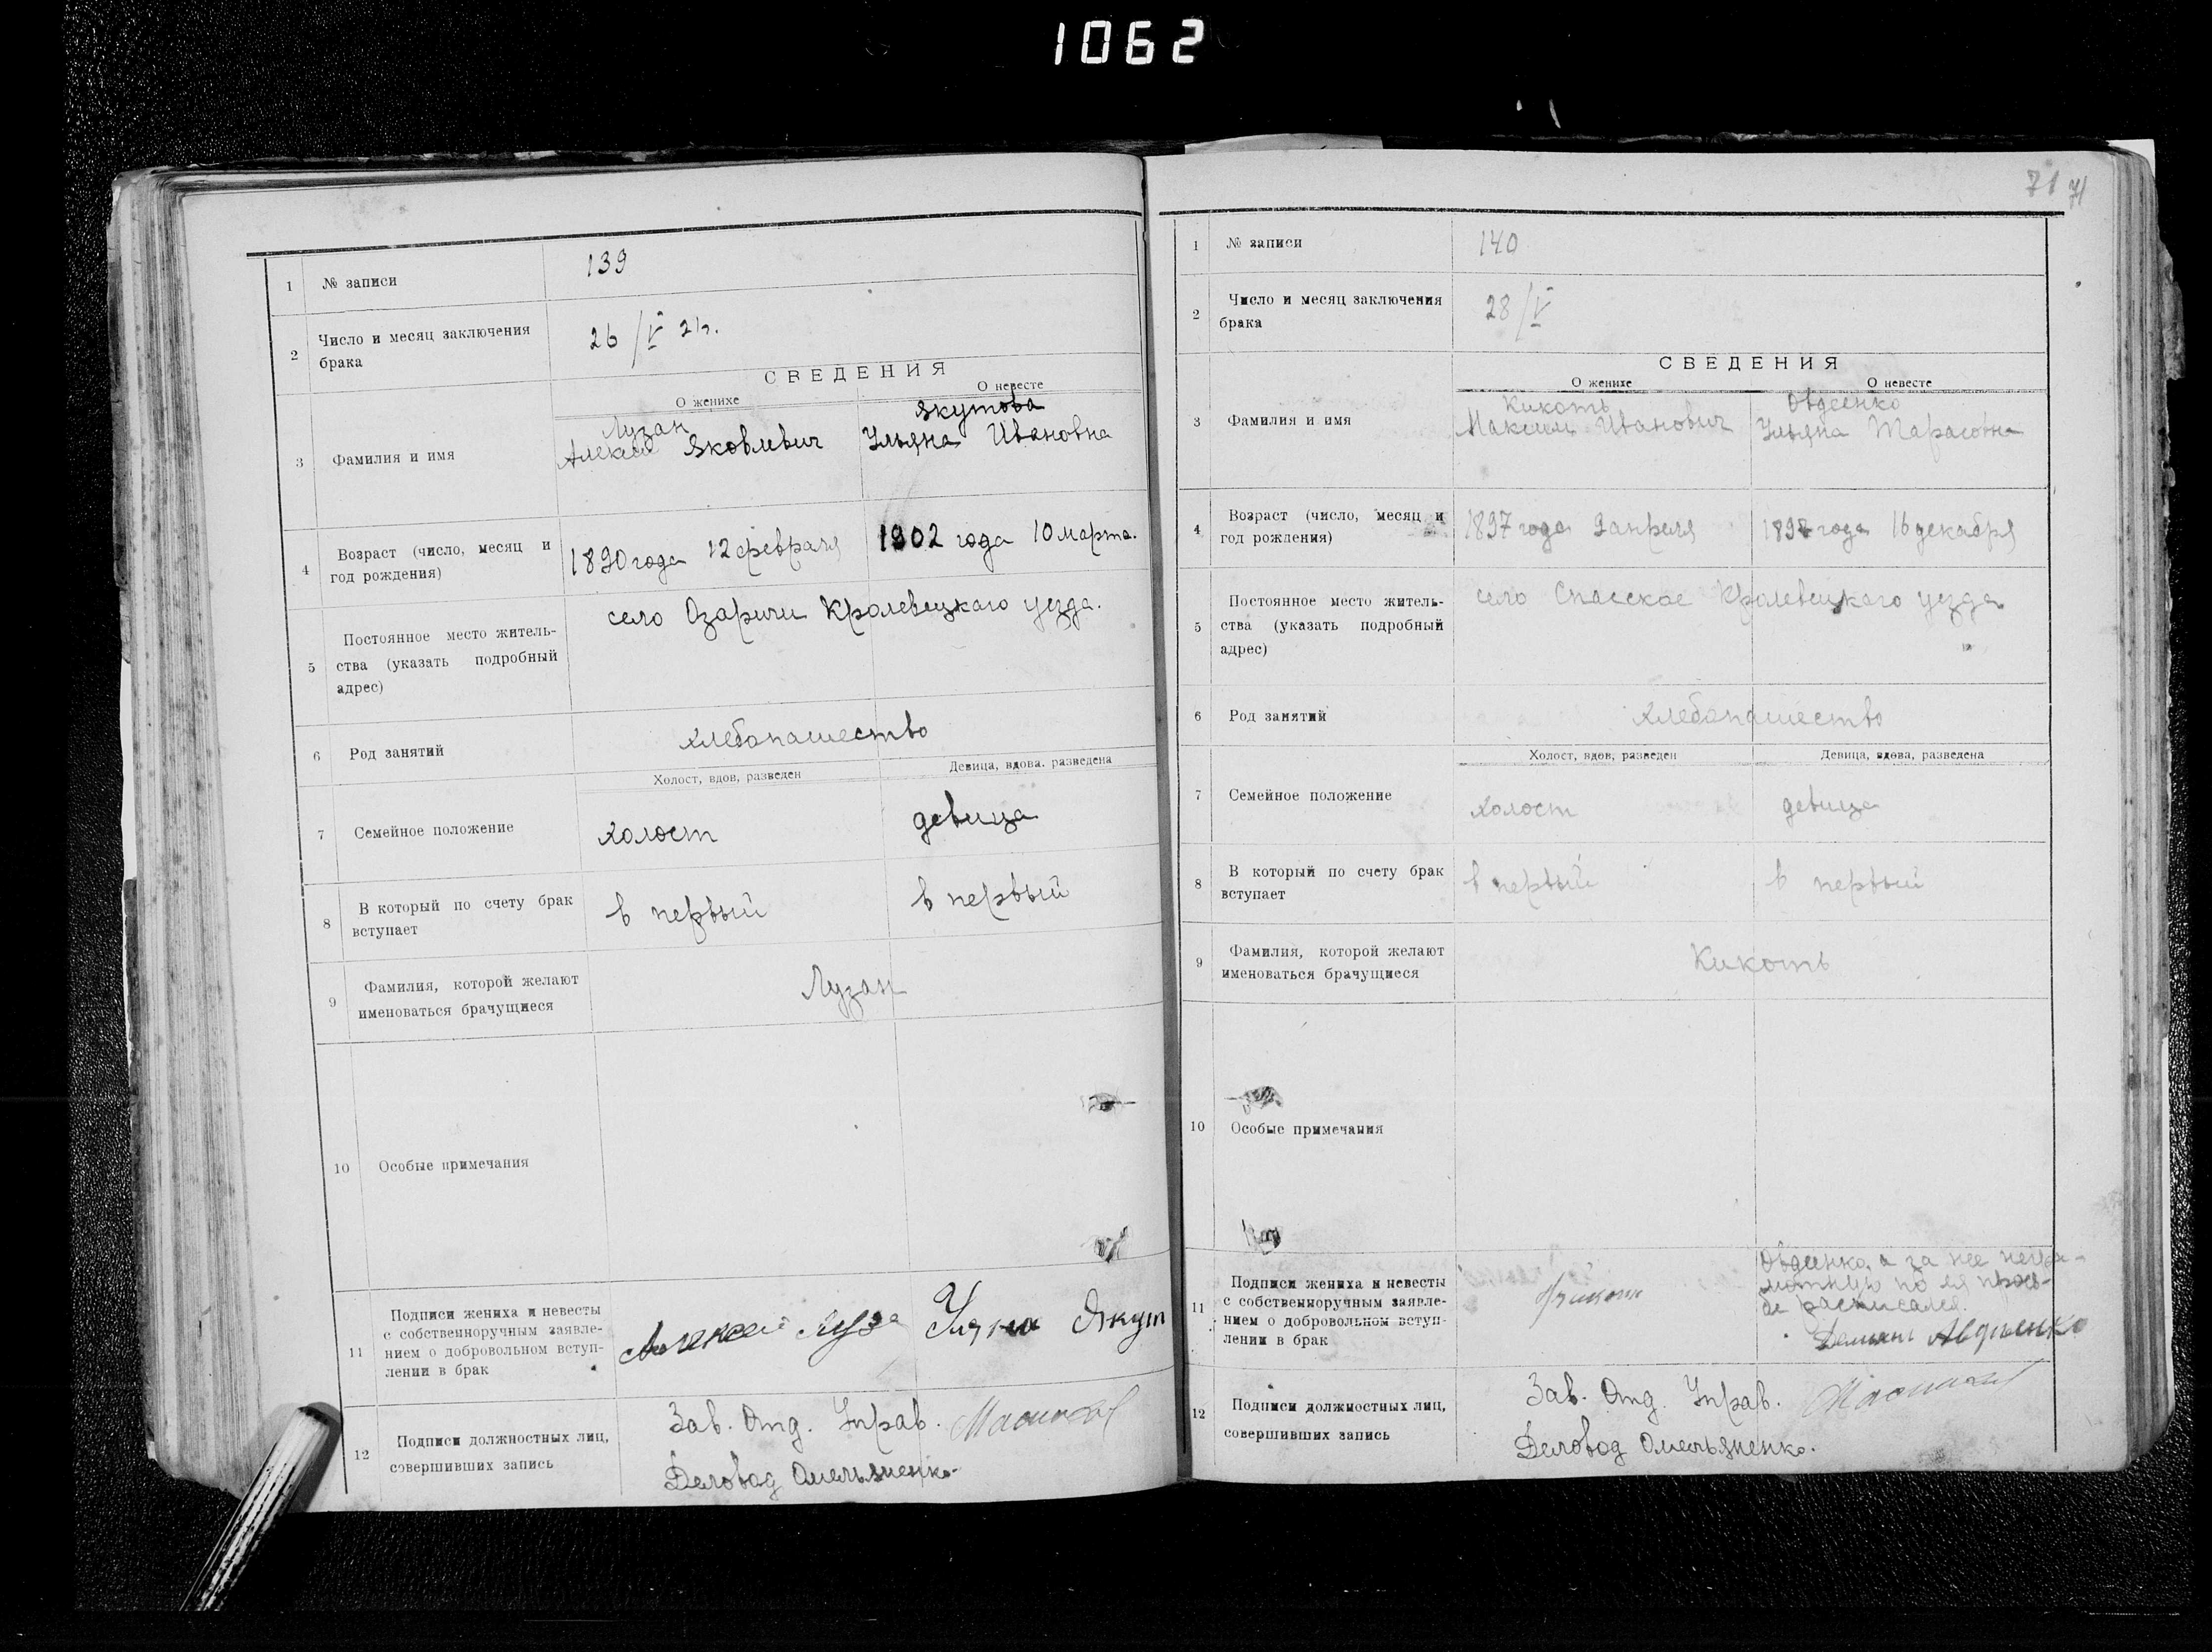 1062
1 № записи 139
2 Число и месяц заключения
брака 26/V 21.
СВЕДЕНИЯ
О женихе О невесте
Лузан Якутова
3 Фамилия и имя Алексей Яковлевич Ульяна Ивановна
4 Возраст (число, месяц и
год рождения) 1890 года 12 февраля 1902 года 10 марта.
село Озаричи Кролевецкаго уезда.
5 Постоянное место житель-
ства (указать подробный
адрес)
6 Род занятий хлебопашество
Холост, вдов, разведен Девица, вдова. разведена
7 Семейное положение холост девица
8 В который по счету брак
вступает в первый в первый
9 Фамилия, которой желают
именоваться брачущиеся Лузан
10 Особые примечания
11 Подписи жениха и невесты
с собственноручным заявле-
нием о добровольном вступ-
лении в брак Алексей Луза Уляна Якут
12 Подписи должностных лиц,
совершивших запись Зав. Отд. Управ.
Деловод Омельяненко.
71 71
1 № записи 140
2 Число и месяц заключения
брака 28/V
СВЕДЕНИЯ
О женихе О невесте
Кикоть Овдеенко
3 Фамилия и имя Максим Иванович Ульяна Тарасовна
4 Возраст (число, месяц и
год рождения) 1897 года 9 апреля 1897 года 16 декабря
село Спасское Кролевецкаго уезда
5 Постоянное место житель-
ства (указать подробный
адрес)
6 Род занятий хлебопашество
Холост, вдов, разведен Девица, вдова, разведена
7 Семейное положение холост девица
8 В который по счету брак
вступает в первый в первый
9 Фамилия, которой желают
именоваться брачущиеся Кикоть
10 Особые примечания
11 Подписи жениха и невесты
с собственноручным заявле-
нием о добровольном вступ-
лении в брак
Овдеенко, а за нее негра-
мотную по ея прось-
бе расписался.
Демьян Авдиенко
12 Подписи должностных лиц,
совершивших запись Зав. Отд. Управ.
Деловод Омельяненко.